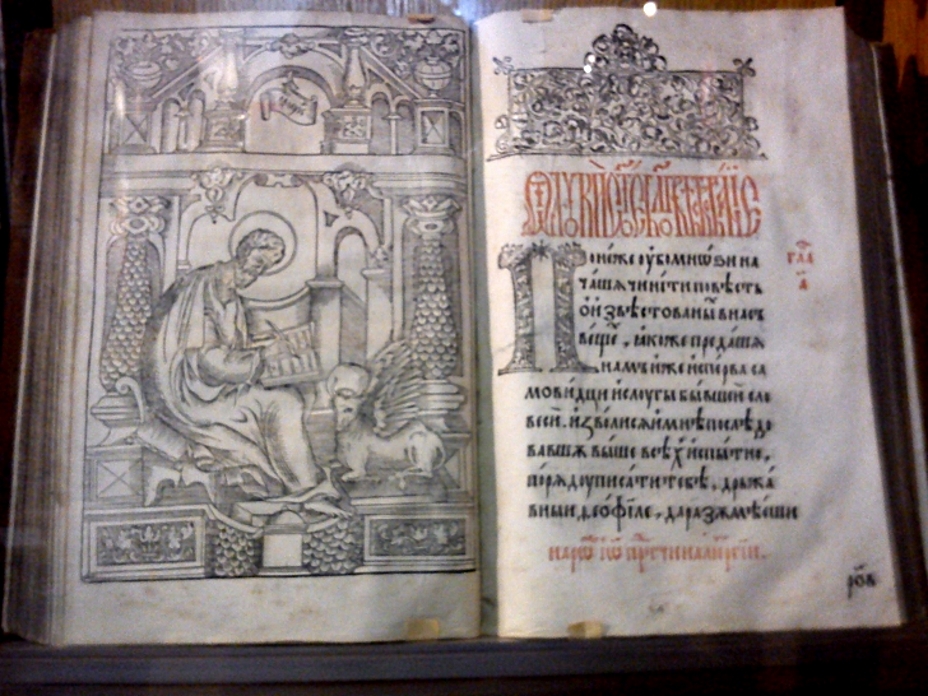 Ѿ лꙋкѝ ст҃ое бл҃говѣствованїе
Понеже оубо мноѕи на
чашѧ чинити повѣсть
ѻ҆ извѣстованыⷯ в насъ
вещеⷯ, ꙗкоже предашѧ
намъ иже исперва са
мовидци и слоугы бывшеи сло
веси. изволисѧ и мнѣ послѣдо
вавшꙋ выше всѣⷯ испытно,
порѧдоу писати тебѣ, држа
вныи ѳеофиле, да разꙋмѣеши
глⷡ҇а
а҃